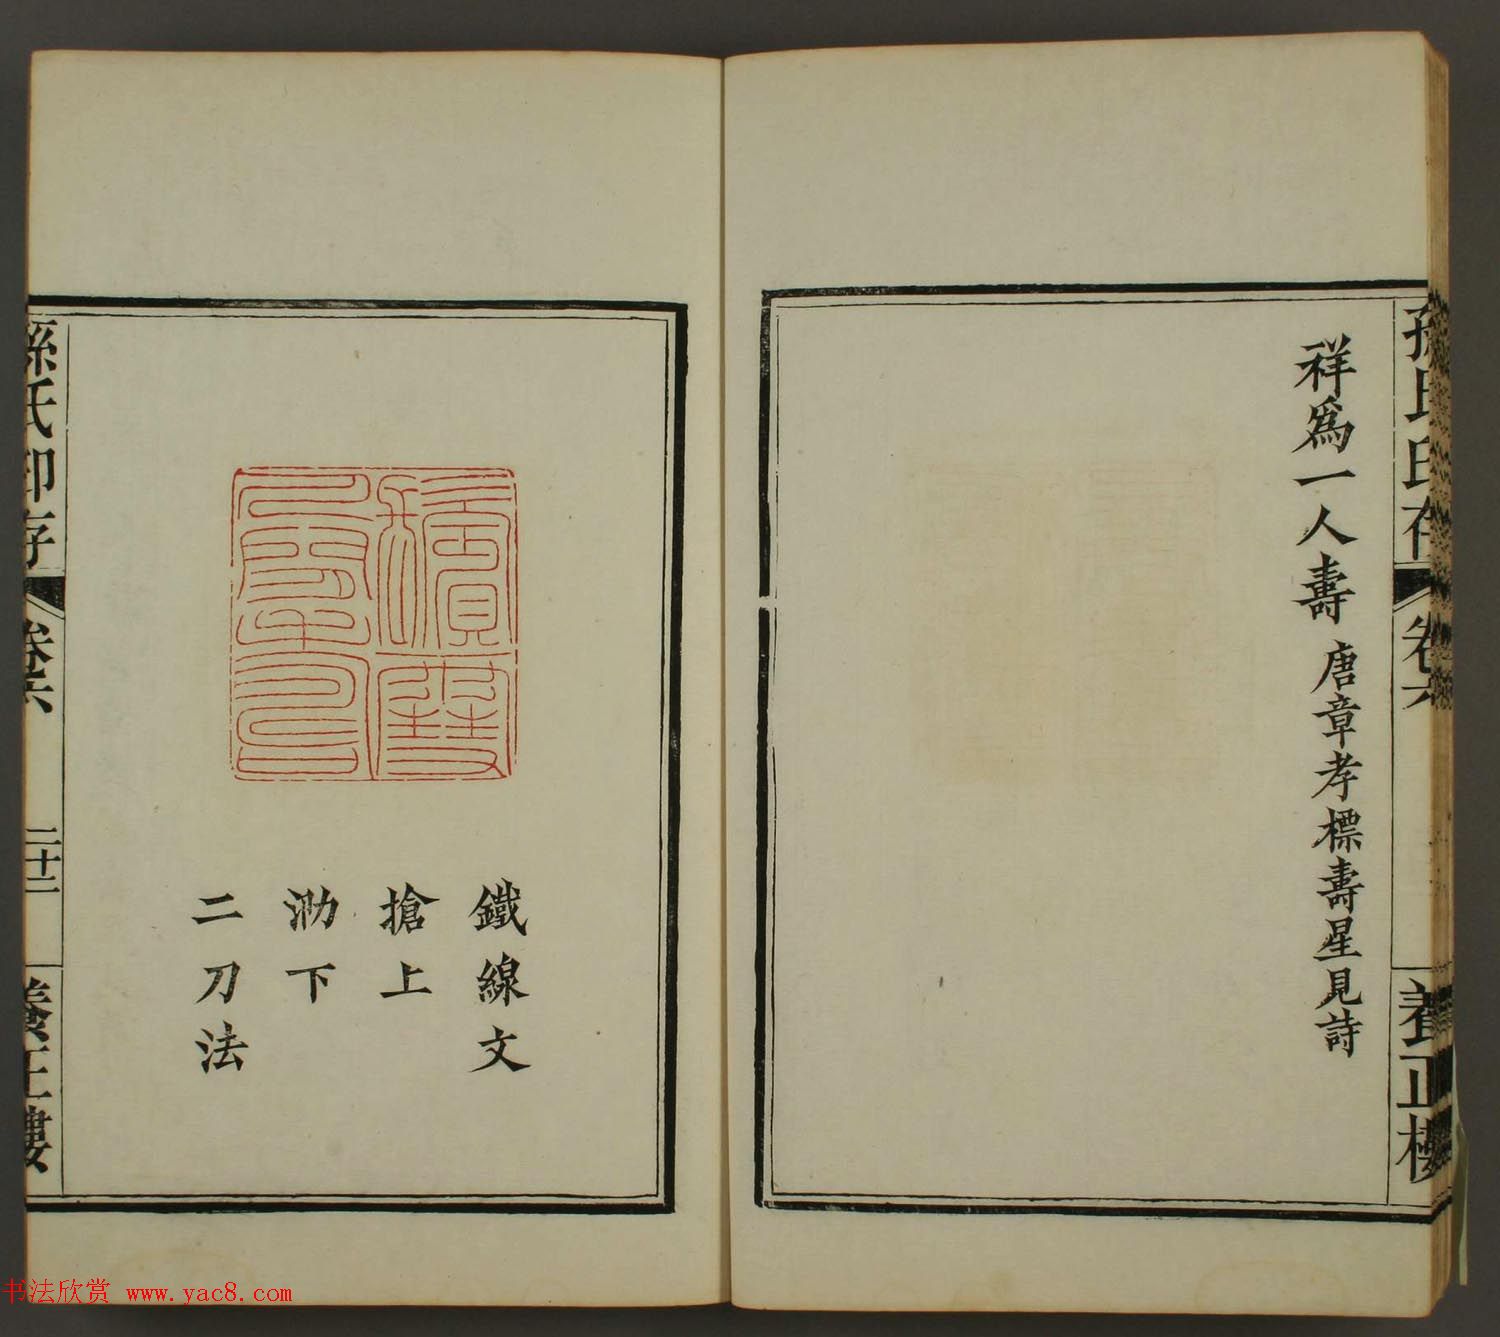 孫氏印存
卷六
養正樓
祥爲一人壽 唐章孝標壽星見詩
鐵線文
搶上
泐下
二刀法
孫氏印存
卷六
二十二
養正樓
书法欣赏 www.yac8.com